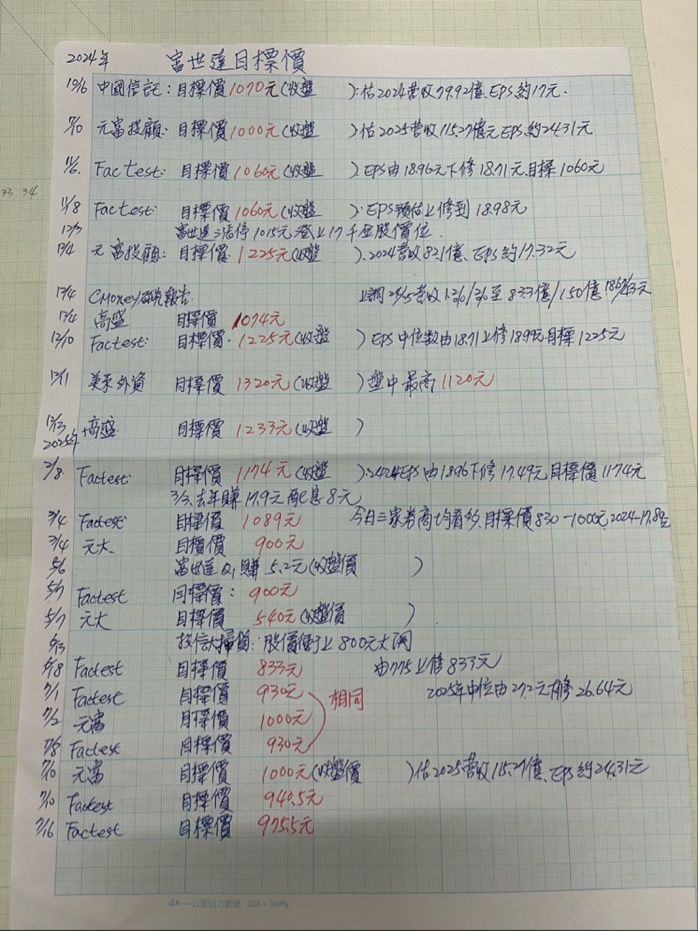 2024年 富世達目標價
10/6 中國信託：目標價1070元(收盤 ):估2024营收79.92億、EPS約17元.
7/10 元富投顧: 目標價1000元(收盤 )估2025营收115.27億元EPS約24.31元
11/6. Factest: 目標價1060元(收盤 ).EPS由18.96元下修18.71元.目標1060元
11/8 Factest: 目標價1060元(收盤 ):EPS預估上修到18.98元
12/3 富世達 漲停1015元.登上17千金股價位.
12/4 元富投顧: 目標價.1225元(收盤 )、2024营收82.1億、EPS約17.32元
12/4 CMoney研究報告. 上調 营收 至833億/150億
12/4 高盛 目標價 1074元
12/10 Factest: 目標價.1225元(收盤 )EPS中位数由18.71上修18.9元.目標1225元
12/11 美系外資 目標價1320元(收盤 )盤中最高1120元
12/13 高盛 目標價1233元(收盤 )
2025年
2/8 Factest: 目標價1174元(收盤 ):2024EPS由18.96下修17.49元.目標價1174元
3/3.去年賺17.9元 配息8元
3/4 Factest 目標價 1089元 今日三家券商均看多.目標價830-1000元.2024-17.89
3/4 元大 目標價 900元
5/6 富世達Q1賺5.2元(收盤價 )
5/7 Factest 目標價： 900元
5/7 元大 目標價 540元(收盤價 )
6/13 投信大掃貨: 股價衝上800元大関
6/18 Factest 目標價 833元 由775上修833元
7/1 Factest 目標價 930元 相同 2025年中位由27.2元下修26.64元
7/2 元富 目標價 1000元
7/8 Factest 目標價 930元
7/10 元富 目標價 1000元(收盤價 )估2025营收115.27億、EPS約24.31元
7/10 Factest 目標價 940.5元
7/16 Factest 目標價 975.5元
33 34